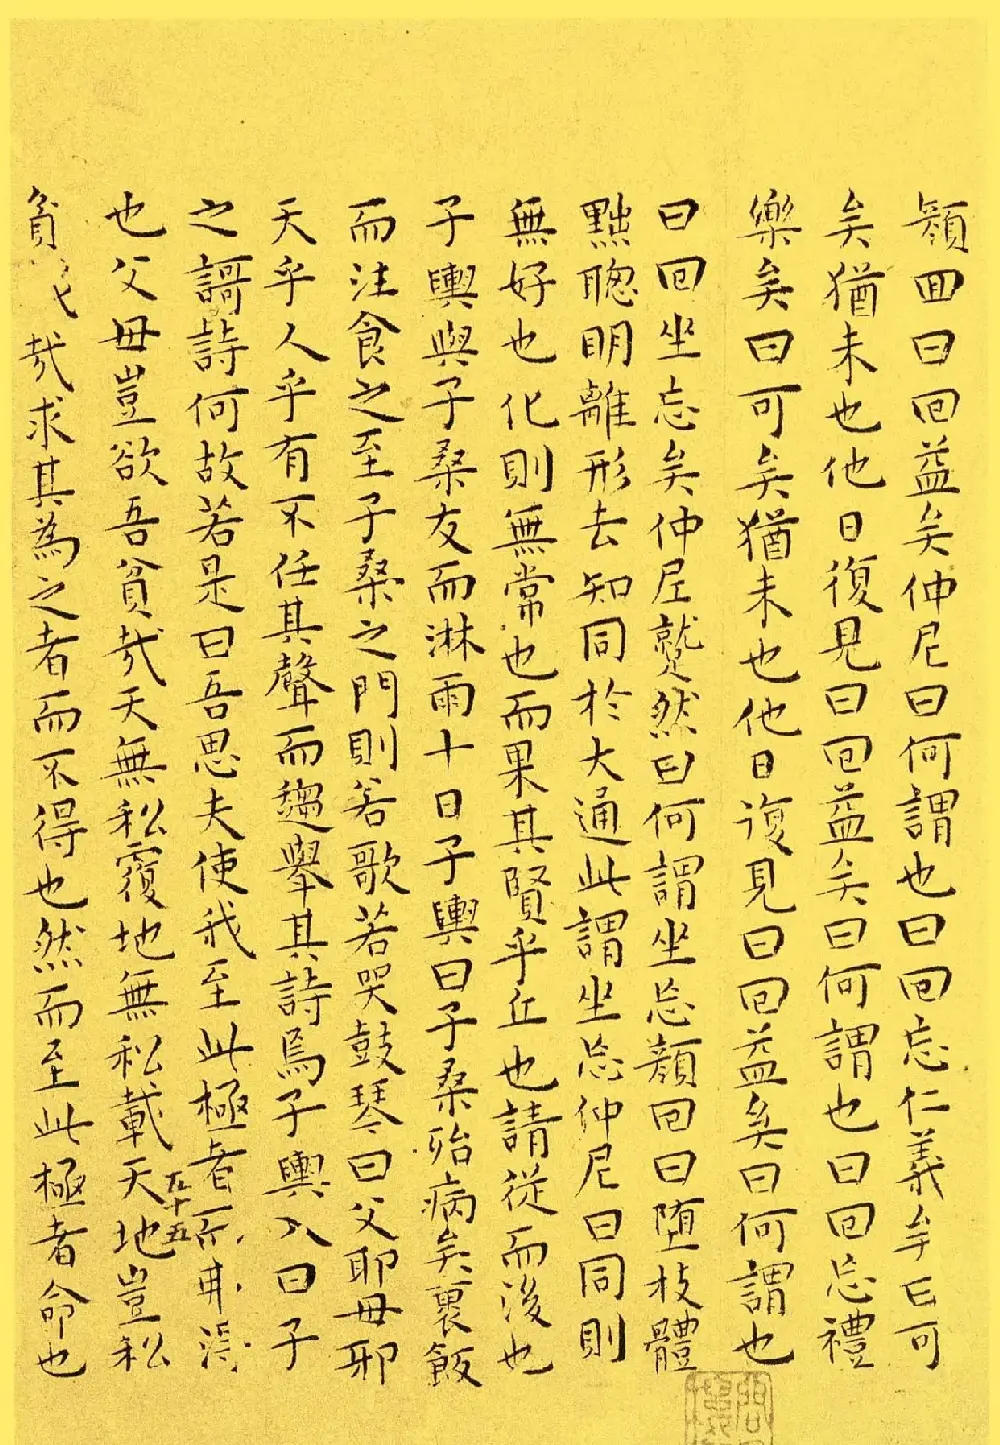 顏回曰回益矣仲尼曰何謂也曰回忘仁義矣曰可
矣猶未也他日復見曰回益矣曰何謂也曰回忘禮
樂矣曰可矣猶未也他日復見曰回益矣曰何謂也
曰回坐忘矣仲尼蹵然曰何謂坐忘顏回曰墮枝體
黜聰明離形去知同於大通此謂坐忘仲尼曰同則
無好也化則無常也而果其賢乎丘也請從而後也
子輿與子桑友而淋雨十日子輿曰子桑殆病矣裹飯
而往食之至子桑之門則若歌若哭鼓琴曰父耶母邪
天乎人乎有不任其聲而趨舉其詩焉子輿入曰子
之謌詩何故若是曰吾思夫使我至此極者而弗得
五十五
也父母豈欲吾貧哉天無私覆地無私載天地豈私
貧哉求其為之者而不得也然而至此極者命也